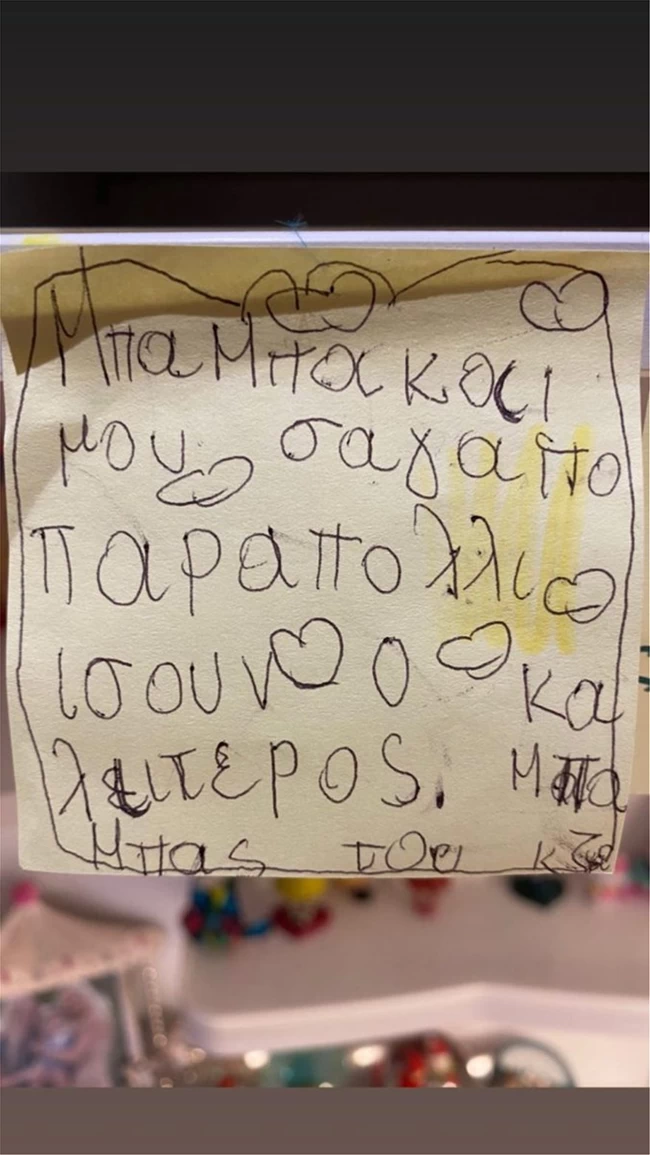 Μπα Μπα κοςι
μου σαγαπο
παραπολλι
ισουν ο κα
λειτερος. Μπα
Μπας του κ